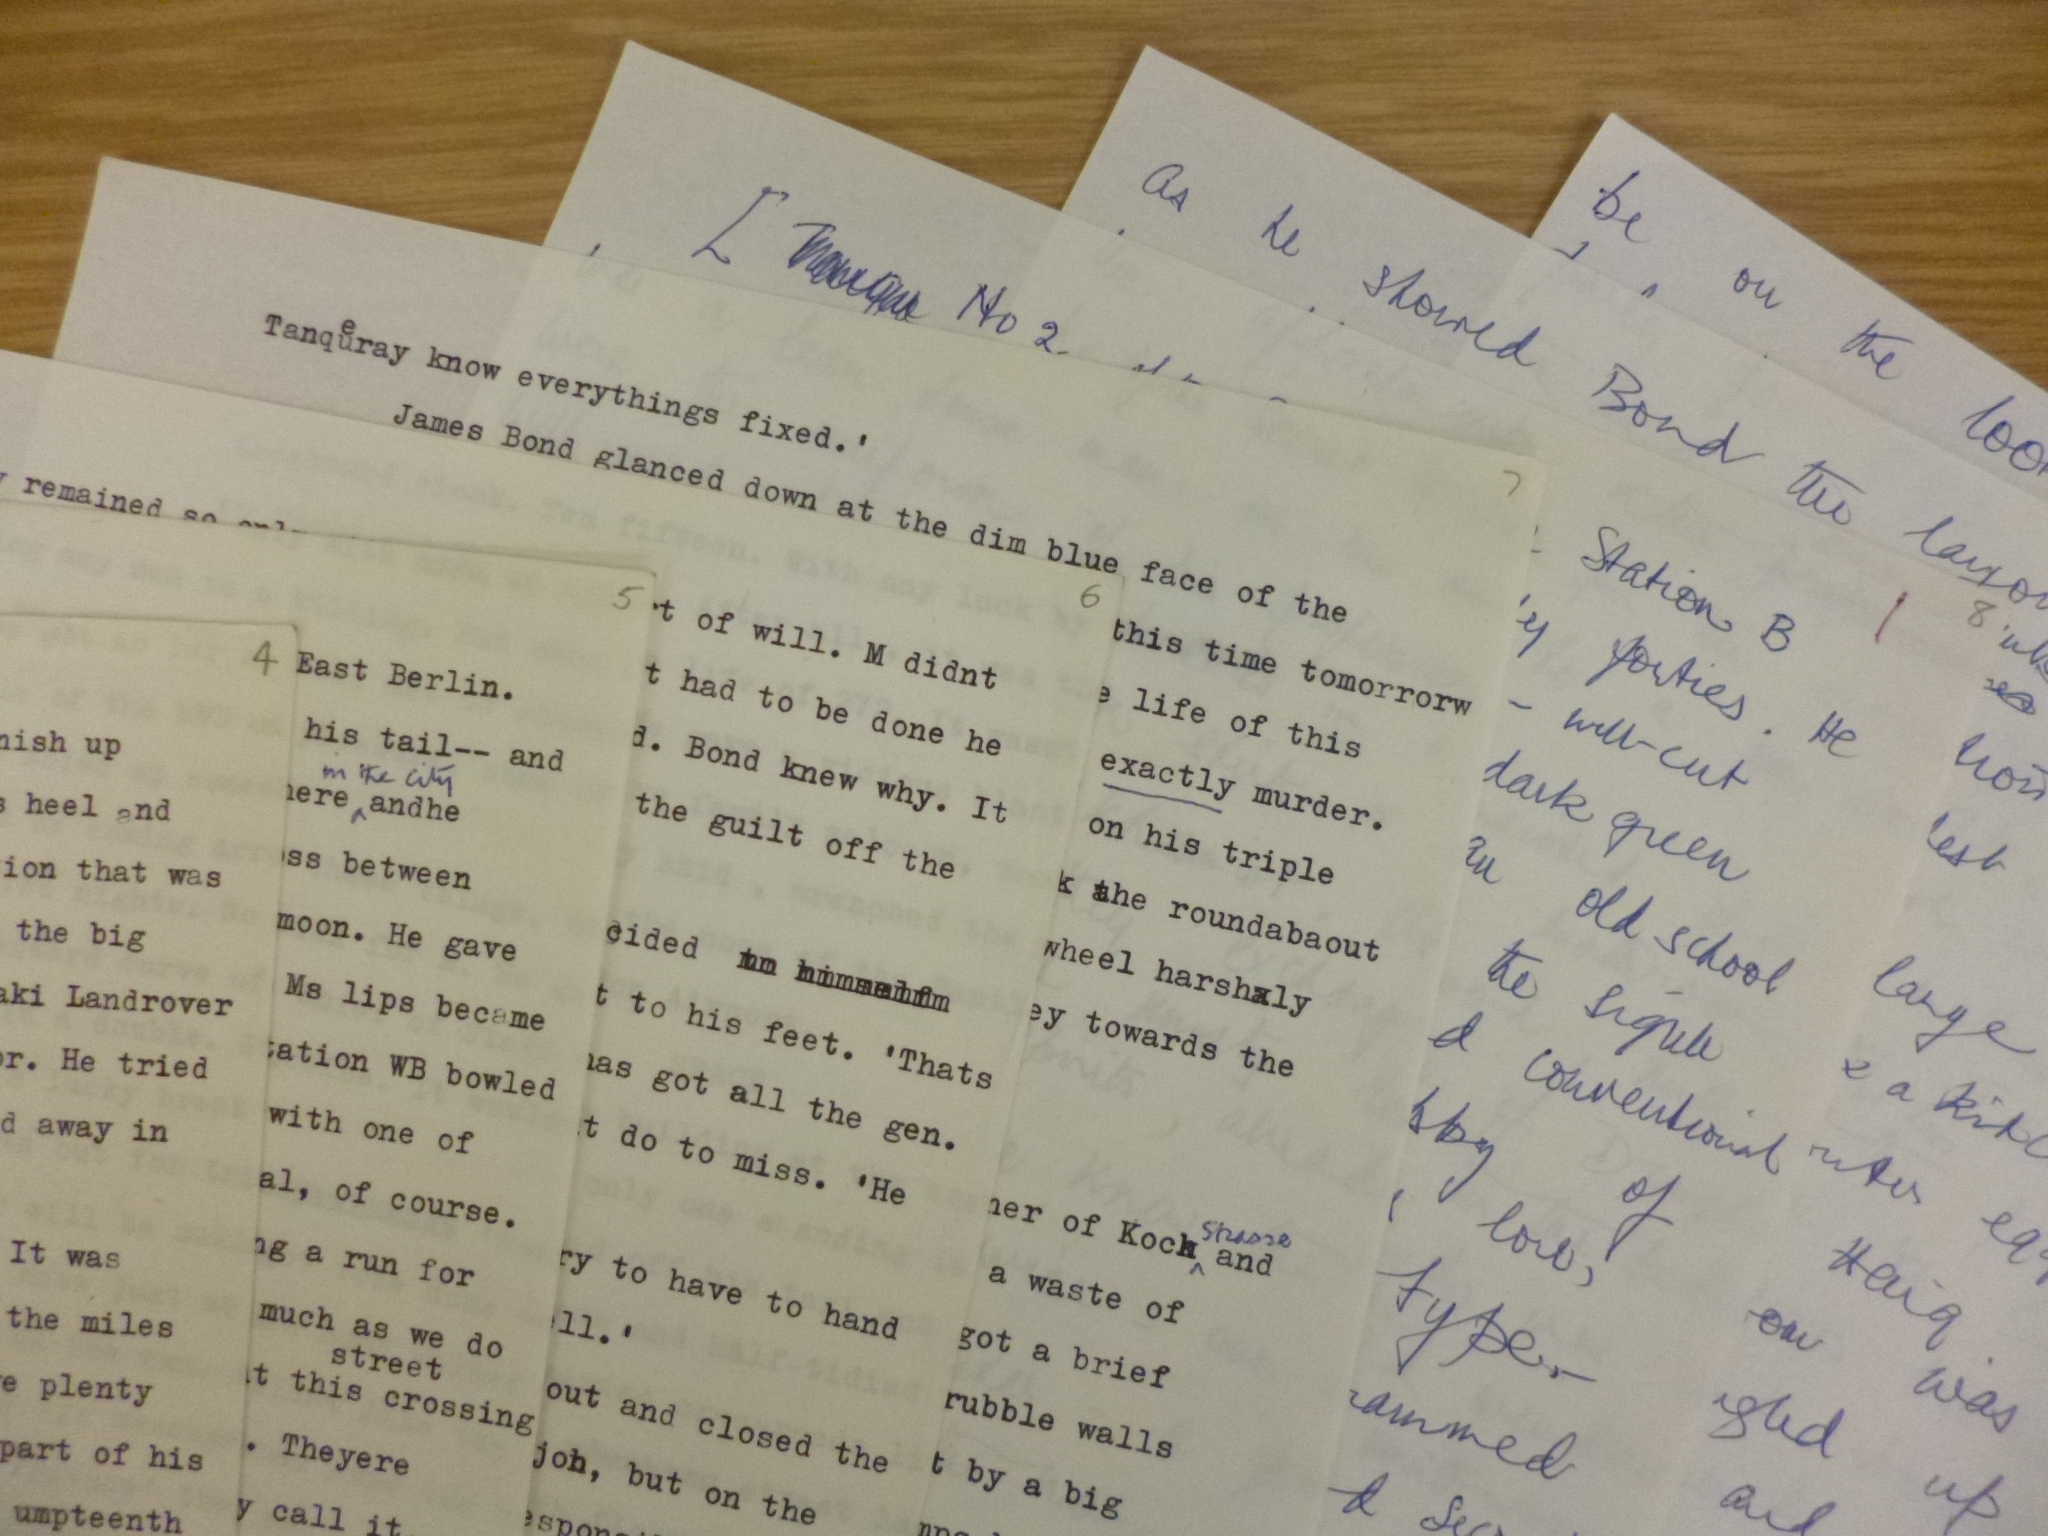 Tanqueray know everythings fixed.'
James Bond glanced down at the dim blue face of the
this time tomorrorw
e life of this
exactly murder.
on his triple
k the roundabaout
wheel harshly
ey towards the
ner of Koch strasse and
a waste of
got a brief
rubble walls
t by a big
7
y remained so
6
't of will. M didnt
t had to be done he
d. Bond knew why. It
the guilt off the
cided
t to his feet. 'Thats
has got all the gen.
t do to miss. 'He
ry to have to hand
ll.'
out and closed the
job, but on the
5
East Berlin.
his tail-- and
here in the city andhe
ss between
moon. He gave
Ms lips became
tation WB bowled
with one of
al, of course.
ng a run for
much as we do
street
t this crossing
. Theyere
y call it
4
nish up
s heel and
ion that was
the big
aki Landrover
or. He tried
d away in
It was
the miles
e plenty
part of his
umpteenth
[ No 2.
8
Station B
forties. He
well-cut
dark green
an old school
the signal
d conventional
of
love,
type.
rammed
As he showed Bond the
be on the
large
was
up
and